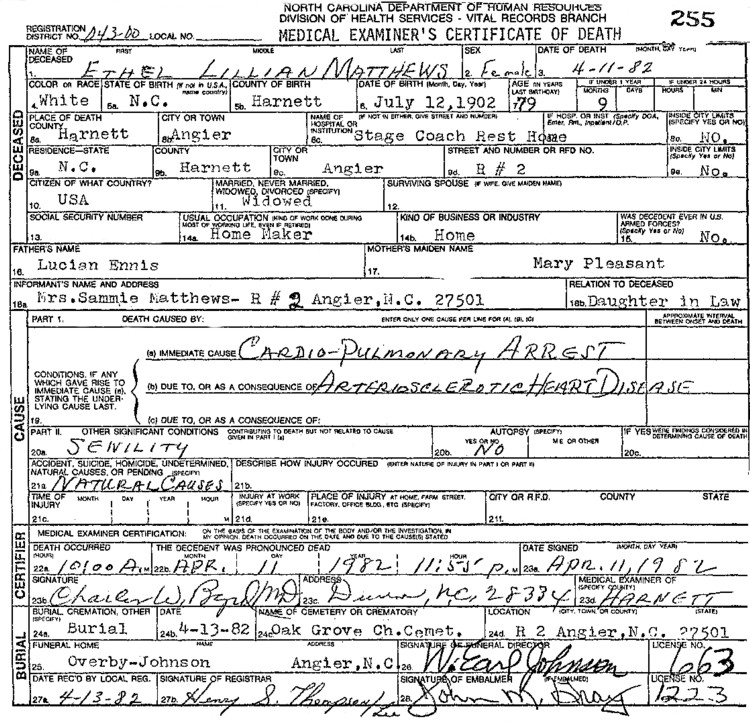 NORTH CAROLINA DEPARTMENT OF HUMAN RESOURCES
DIVISION OF HEALTH SERVICES - VITAL RECORDS BRANCH
255
REGISTRATION DISTRICT NO. 043-00 LOCAL NO.
MEDICAL EXAMINER'S CERTIFICATE OF DEATH
DECEASED
NAME OF DECEASED FIRST MIDDLE LAST SEX DATE OF DEATH (MONTH, DAY, YEAR)
1. ETHEL LILLIAN MATTHEWS 2. Female 3. 4-11-82
COLOR OR RACE STATE OF BIRTH (If not in U.S.A., name country) COUNTY OF BIRTH DATE OF BIRTH (Month, Day, Year) AGE (IN YEARS LAST BIRTHDAY) IF UNDER 1 YEAR IF UNDER 24 HOURS
MONTHS DAYS HOURS MIN
4. White 5a. N.C. 5b. Harnett 6. July 12,1902 7. 79 9
PLACE OF DEATH COUNTY CITY OR TOWN NAME OF HOSPITAL OR INSTITUTION (IF NOT IN EITHER, GIVE STREET AND NUMBER) IF HOSP. OR INST (Specify DOA, Emer. Rm., Inpatient/O.P. INSIDE CITY LIMITS (SPECIFY YES OR NO)
8a. Harnett 8b. Angier 8c. Stage Coach Rest Home 8e. NO.
RESIDENCE-STATE COUNTY CITY OR TOWN STREET AND NUMBER OR RFD NO. INSIDE CITY LIMITS (Specify Yes or No)
9a. N.C. 9b. Harnett 9c. Angier 9d. R # 2 9e. No.
CITIZEN OF WHAT COUNTRY? MARRIED, NEVER MARRIED, WIDOWED, DIVORCED (SPECIFY) SURVIVING SPOUSE (IF WIFE, GIVE MAIDEN NAME)
10. USA 11. Widowed 12.
SOCIAL SECURITY NUMBER USUAL OCCUPATION (KIND OF WORK DONE DURING MOST OF WORKING LIFE, EVEN IF RETIRED) KIND OF BUSINESS OR INDUSTRY WAS DECEDENT EVER IN U.S. ARMED FORCES? (Specify Yes or No)
13. 14a. Home Maker 14b. Home 15. No.
FATHER'S NAME MOTHER'S MAIDEN NAME
16. Lucian Ennis 17. Mary Pleasant
INFORMANT'S NAME AND ADDRESS RELATION TO DECEASED
18a. Mrs.Sammie Matthews- R # 2 Angier,N.C. 27501 18b. Daughter in Law
CAUSE
PART 1. DEATH CAUSED BY: ENTER ONLY ONE CAUSE PER LINE FOR (A), (B), (C) APPROXIMATE INTERVAL BETWEEN ONSET AND DEATH
(a) IMMEDIATE CAUSE CARDIO-PULMONARY ARREST
CONDITIONS, IF ANY WHICH GAVE RISE TO IMMEDIATE CAUSE (a), STATING THE UNDERLYING CAUSE LAST.
(b) DUE TO, OR AS A CONSEQUENCE OF: ARTERIOSCLEROTIC HEART DISEASE
19. (c) DUE TO, OR AS A CONSEQUENCE OF:
PART II. OTHER SIGNIFICANT CONDITIONS CONTRIBUTING TO DEATH BUT NOT RELATED TO CAUSE GIVEN IN PART I (a) AUTOPSY (SPECIFY) YES OR NO ME OR OTHER IF YES WERE FINDINGS CONSIDERED IN DETERMINING CAUSE OF DEATH
20a. SENILITY 20b. NO 20c.
ACCIDENT, SUICIDE, HOMICIDE, UNDETERMINED, NATURAL CAUSES, OR PENDING (SPECIFY) DESCRIBE HOW INJURY OCCURED (ENTER NATURE OF INJURY IN PART I OR PART II)
21a. NATURAL CAUSES 21b.
TIME OF INJURY MONTH DAY YEAR HOUR INJURY AT WORK (SPECIFY YES OR NO) PLACE OF INJURY AT HOME, FARM STREET, FACTORY, OFFICE BLDG., ETC (SPECIFY) CITY OR R.F.D. COUNTY STATE
21c. M 21d. 21e. 21f.
CERTIFIER
MEDICAL EXAMINER CERTIFICATION: ON THE BASIS OF THE EXAMINATION OF THE BODY AND/OR THE INVESTIGATION, IN MY OPINION, DEATH OCCURRED ON THE DATE AND DUE TO THE CAUSE(S) STATED
DEATH OCCURRED (HOUR) THE DECEDENT WAS PRONOUNCED DEAD MONTH DAY YEAR HOUR DATE SIGNED (MONTH, DAY, YEAR)
22a. 10:00 A.M 22b. APR. 11 1982 11:55 P. M 23a. APR. 11, 1982
SIGNATURE ADDRESS MEDICAL EXAMINER OF (SPECIFY COUNTY)
23b. Charles W. Byrd MD 23c. Dunn, N.C. 28334 23d. HARNETT
BURIAL
BURIAL, CREMATION, OTHER (SPECIFY) DATE NAME OF CEMETERY OR CREMATORY LOCATION (CITY, TOWN, OR COUNTY) (STATE)
24a. Burial 24b. 4-13-82 24c. Oak Grove Ch.Cemet. 24d. R 2 Angier,N.C. 27501
FUNERAL HOME NAME ADDRESS SIGNATURE OF FUNERAL DIRECTOR LICENSE NO.
25. Overby-Johnson Angier,N.C 26. W. Earl Johnson 663
DATE REC'D BY LOCAL REG. SIGNATURE OF REGISTRAR SIGNATURE OF EMBALMER (IF EMBALMED) LICENSE NO.
27a. 4-13-82 27b. Henry S. Thompson/ 28. John M. Gray 1223